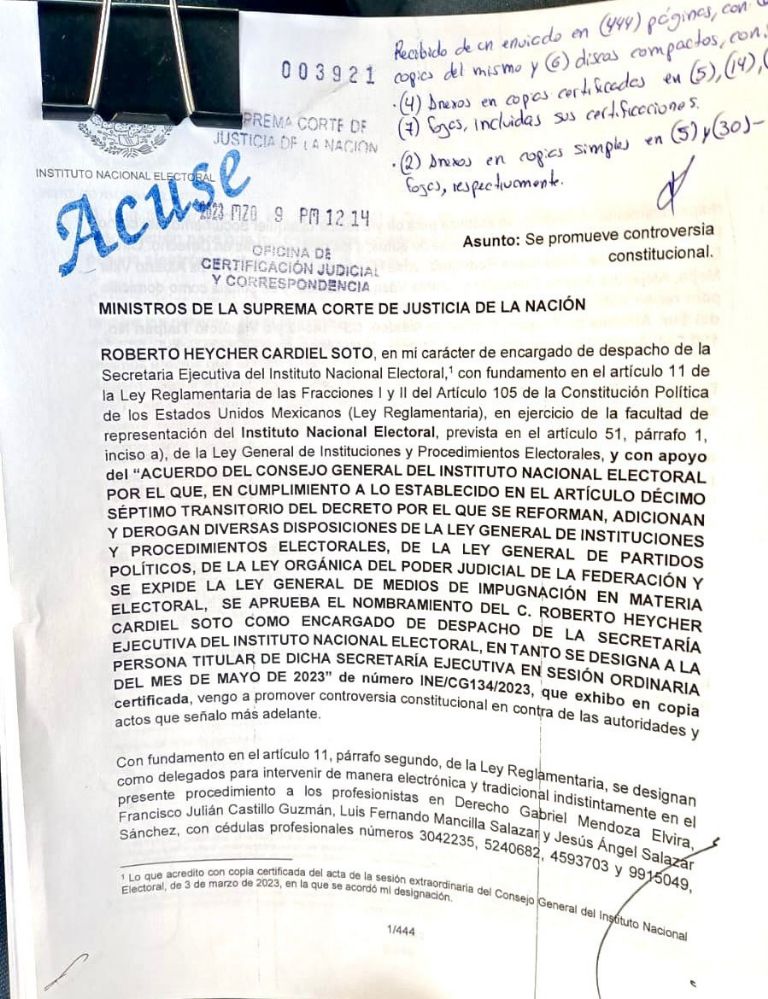 Recibido de un enviado en (444) páginas, con
copias del mismo y (6) discos compactos, con
003921
·(4) Anexos en copias certificadas en (5), (14),
(7) fojas, incluidas sus certificaciones.
·(2) Anexos en copias simples en (5) y (30)-
fojas, respectivamente.
SUPREMA CORTE DE
JUSTICIA DE LA NACIÓN
INSTITUTO NACIONAL ELECTORAL
Acuse
2023 MZO 9 PM 12 14
OFICINA DE
CERTIFICACIÓN JUDICIAL
Y CORRESPONDENCIA
Asunto: Se promueve controversia
constitucional.
MINISTROS DE LA SUPREMA CORTE DE JUSTICIA DE LA NACIÓN
ROBERTO HEYCHER CARDIEL SOTO, en mi carácter de encargado de despacho de la
Secretaria Ejecutiva del Instituto Nacional Electoral,¹ con fundamento en el artículo 11 de
la Ley Reglamentaria de las Fracciones I y II del Artículo 105 de la Constitución Política
de los Estados Unidos Mexicanos (Ley Reglamentaria), en ejercicio de la facultad de
representación del Instituto Nacional Electoral, prevista en el artículo 51, párrafo 1,
inciso a), de la Ley General de Instituciones y Procedimientos Electorales, y con apoyo
del "ACUERDO DEL CONSEJO GENERAL DEL INSTITUTO NACIONAL ELECTORAL
POR EL QUE, EN CUMPLIMIENTO A LO ESTABLECIDO EN EL ARTÍCULO DÉCIMO
SÉPTIMO TRANSITORIO DEL DECRETO POR EL QUE SE REFORMAN, ADICIONAN
Y DEROGAN DIVERSAS DISPOSICIONES DE LA LEY GENERAL DE INSTITUCIONES
Y PROCEDIMIENTOS ELECTORALES, DE LA LEY GENERAL DE PARTIDOS
POLÍTICOS, DE LA LEY ORGÁNICA DEL PODER JUDICIAL DE LA FEDERACIÓN Y
SE EXPIDE LA LEY GENERAL DE MEDIOS DE IMPUGNACIÓN EN MATERIA
ELECTORAL, SE APRUEBA EL NOMBRAMIENTO DEL C. ROBERTO HEYCHER
CARDIEL SOTO COMO ENCARGADO DE DESPACHO DE LA SECRETARÍA
EJECUTIVA DEL INSTITUTO NACIONAL ELECTORAL, EN TANTO SE DESIGNA A LA
PERSONA TITULAR DE DICHA SECRETARÍA EJECUTIVA EN SESIÓN ORDINARIA
DEL MES DE MAYO DE 2023" de número INE/CG134/2023, que exhibo en copia
certificada, vengo a promover controversia constitucional en contra de las autoridades y
actos que señalo más adelante.
Con fundamento en el artículo 11, párrafo segundo, de la Ley Reglamentaria, se designan
como delegados para intervenir de manera electrónica y tradicional indistintamente en el
presente procedimiento a los profesionistas en Derecho Gabriel Mendoza Elvira,
Francisco Julián Castillo Guzmán, Luis Fernando Mancilla Salazar y Jesús Ángel Salazar
Sánchez, con cédulas profesionales números 3042235, 5240682, 4593703 y 9915049,
¹ Lo que acredito con copia certificada del acta de la sesión extraordinaria del Consejo General del Instituto Nacional
Electoral, de 3 de marzo de 2023, en la que se acordó mi designación.
1/444